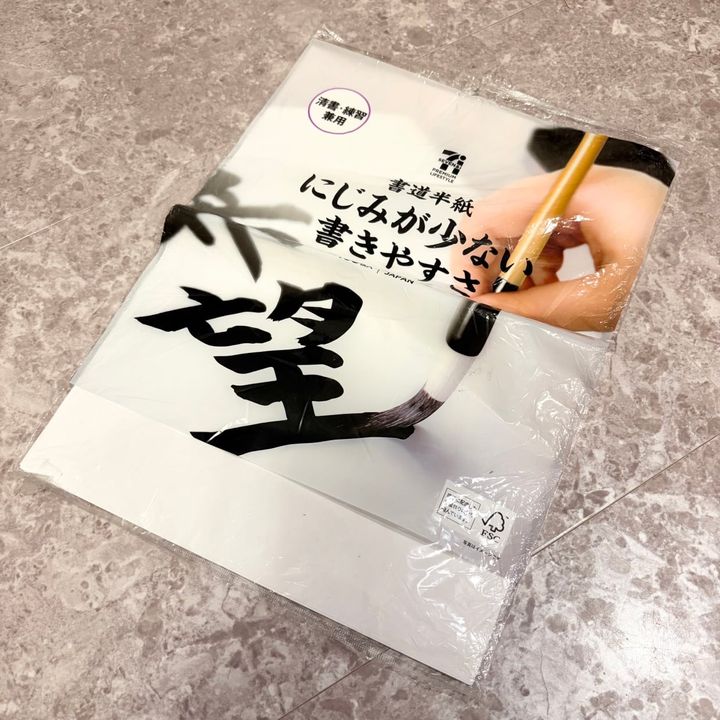 清書・練習
兼用
SEVEN&i
PREMIUM
LIFESTYLE
書道半紙
にじみが少ない
書きやすさ
JAPAN
望
FSC